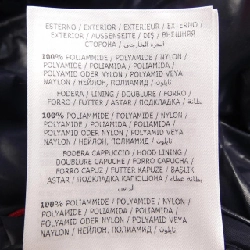 ESTERNO / EXTERIOR / EXTERIEUR /
EXTERIOR / AUSSENSEITE / DIŞ / ВНЕШНЯЯ
СТОРОНА /
100% POLIAMMIDE / POLYAMIDE / NYLON /
POLYAMIDE / POLIAMIDA / POLIAMIDA /
POLYAMID ODER NYLON / POLYAMID VEYA
NAYLON / НЕЙЛОН, ПОЛИАМИД / نايلون
FODERA / LINING / DOUBLURE / FORRO /
FORRO / FUTTER / ASTAR / ПОДКЛАДКА / بطانة
100% POLIAMMIDE / POLYAMIDE / NYLON /
POLYAMIDE / POLIAMIDA / POLIAMIDA /
POLYAMID ODER NYLON / POLYAMID VEYA
NAYLON / НЕЙЛОН, ПОЛИАМИД / نايلون
FODERA CAPPUCCIO / HOOD LINING /
DOUBLURE CAPUCHE / FORRO CAPUCHA /
FORRO CAPUZ / FUTTER KAPUZE / BAŞLIK
ASTAR / ПОДКЛАДКА КАПЮШОНА / بطانة غطاء
الرأس
100% POLIAMMIDE / POLYAMIDE / NYLON /
POLYAMIDE / POLIAMIDA / POLIAMIDA /
POLYAMID ODER NYLON / POLYAMID VEYA
NAYLON / НЕЙЛОН, ПОЛИАМИД / نايلون